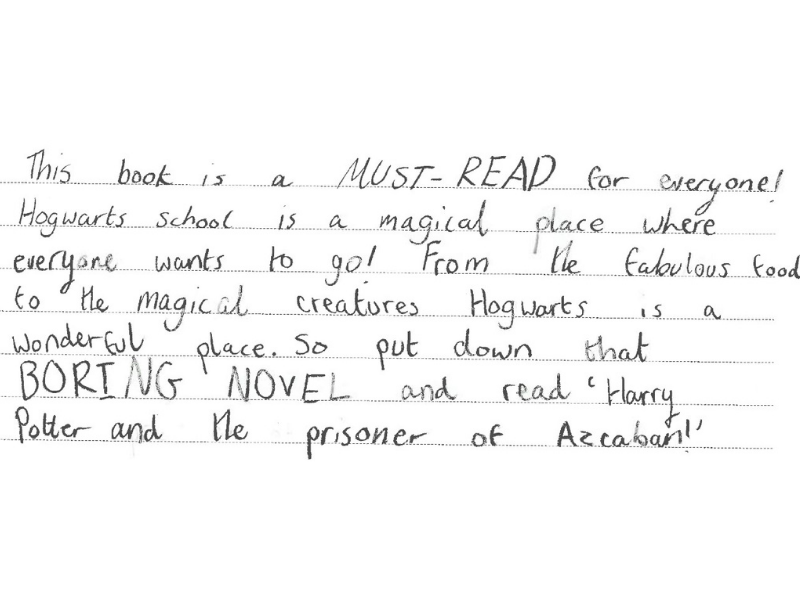 This book is a MUST-READ for everyone!
Hogwarts school is a magical place where
everyone wants to go! From the fabulous food
to the magical creatures Hogwarts is a
wonderful place. So put down that
BORING NOVEL and read 'Harry
Potter and the prisoner of Azcaban!'